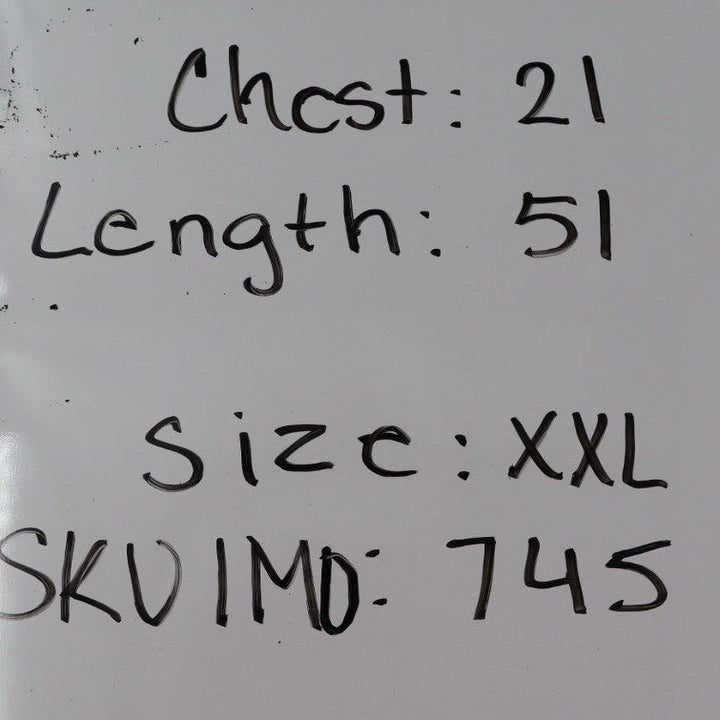 Chest: 21
Length: 51
Size: XXL
SKU IMD: 745